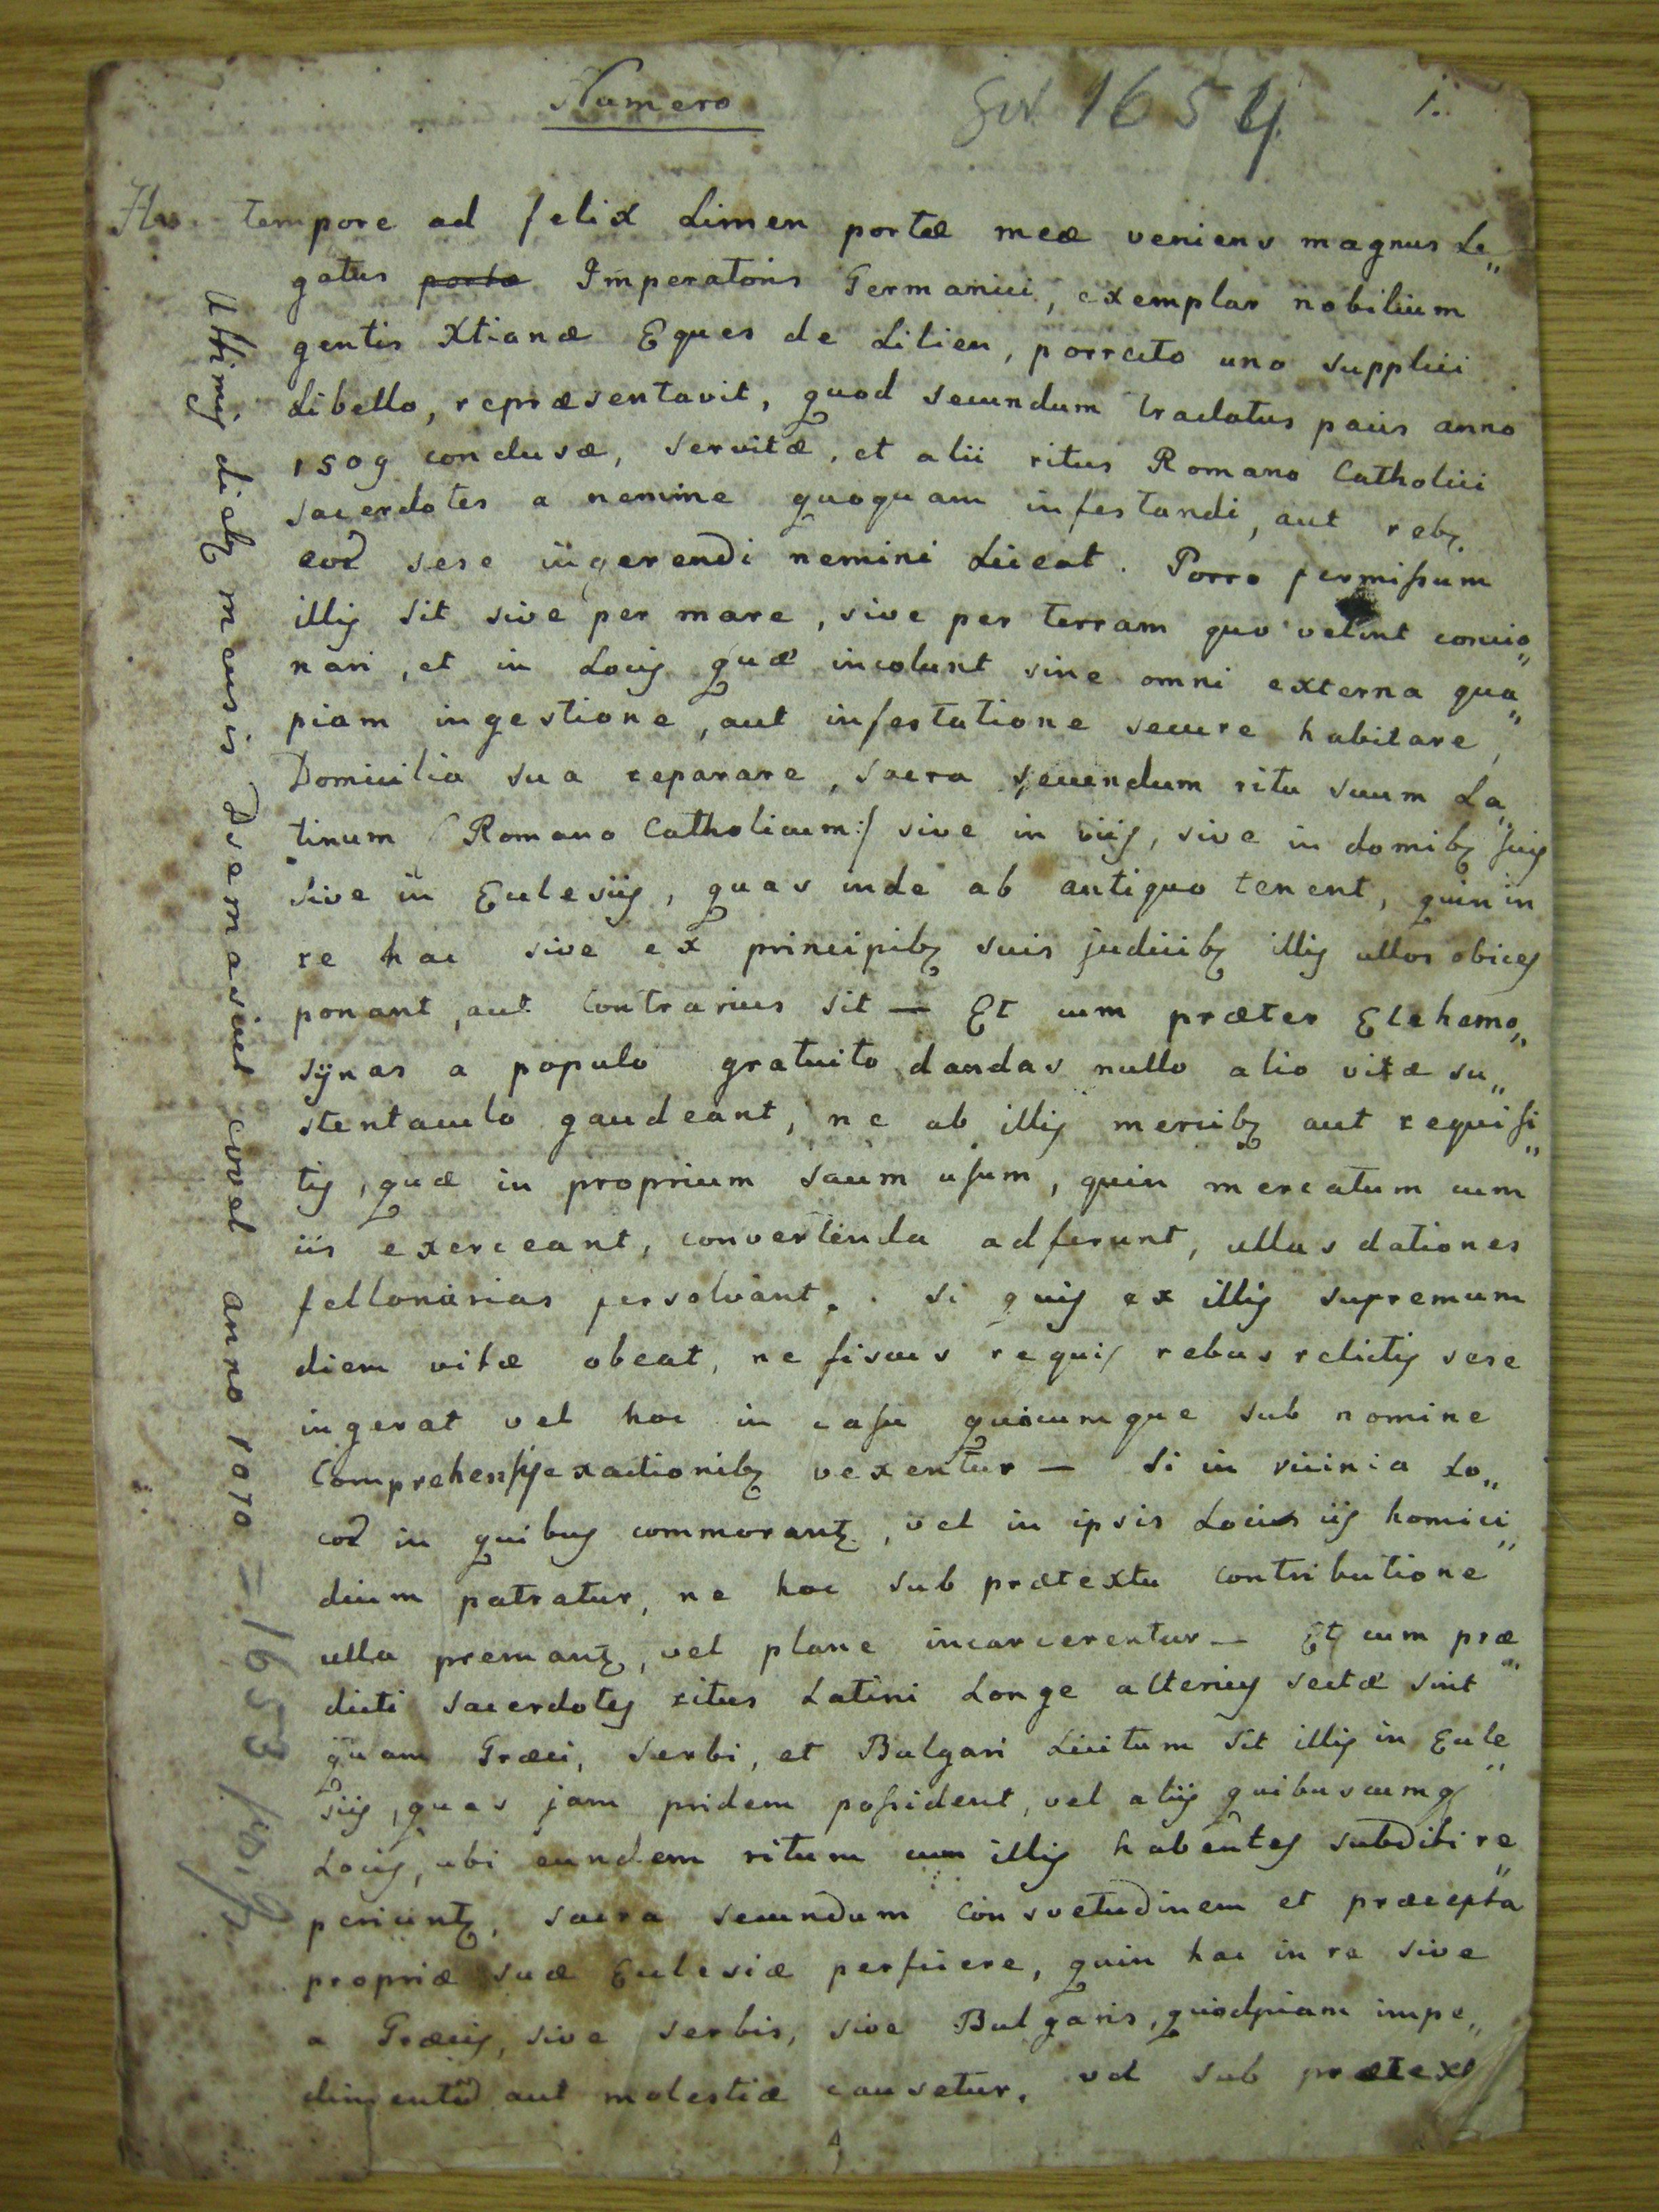 Numero
1654
1.
tempore ad felix Limen portæ meæ veniens magnus Le„
gatus portæ Imperatoris Germanici, exemplar nobilium
gentis Xtianæ Eques de Lilien, porrecto uno supplici
Libello, repræsentavit, quod secundum tractatus pacis anno
1509 conclusæ, servitæ, et alii ritus Romano Catholici
sacerdotes a nemine quoquam infestandi, aut rebq
eoꝝ sese ingerendi nemini Liceat. Porro permissum
illis sit sive per mare, sive per terram quo velint concio„
nari, et in Locis quæ incolunt sine omni externa qua„
piam ingestione, aut infestatione secure habitare,
Domicilia sua reparare, sacra secundum ritu suum La„
tinum /: Romano Catholicum:/ sive in viis, sive in domibq suis
sive in Ecclesiis, quas inde ab antiquo tenent, quin in
re hac sive ex principibq suis judicibq illis ullos obices
ponant, aut contrarius sit — Et cum præter Elehemo„
sÿnas a populo gratuito dandas nullo alio vitæ su„
stentaculo gaudeant, ne ab illis mercibq aut requisi„
tis, quæ in proprium suum usum, quin mercatum cum
iis exerceant, convertenda adferunt, ullas dationes
fellonarias persolvant. Si quis ex illis supremum
diem vitæ obeat, ne fiscus requis rebus relictis sese
ingerat vel hoc in casu quocumque sub nomine
Comprehensis exactionibq vexentur — Si in vicinia Lo„
coꝝ in quibus commorantꝛ, vel in ipsis Locis iis homici„
dium patratur, ne hoc sub prætextu contributione
ulla premantꝛ, vel plane incarcerentur — Et cum præ„
dicti sacerdotes ritus Latini Longe alterius sectæ sint
quam Græci, Serbi, et Bulgari Licitum sit illis in Eccle„
siis, quas jam pridem possident, vel aliis quibuscumq
Locis, ubi eundem ritum cum illis habentes subditi re„
periuntꝛ, sacra secundum consvetudinem et præcepta
propriæ suæ Ecclesiæ perficere, quin hac in re sive
a Græcis, sive Serbis, sive Bulgaris, quodpiam impe„
dimentũ aut molestiæ causetur, vel sub prætext
Ultimis diebq mensis Demasiul evvel anno 1070 = 1653